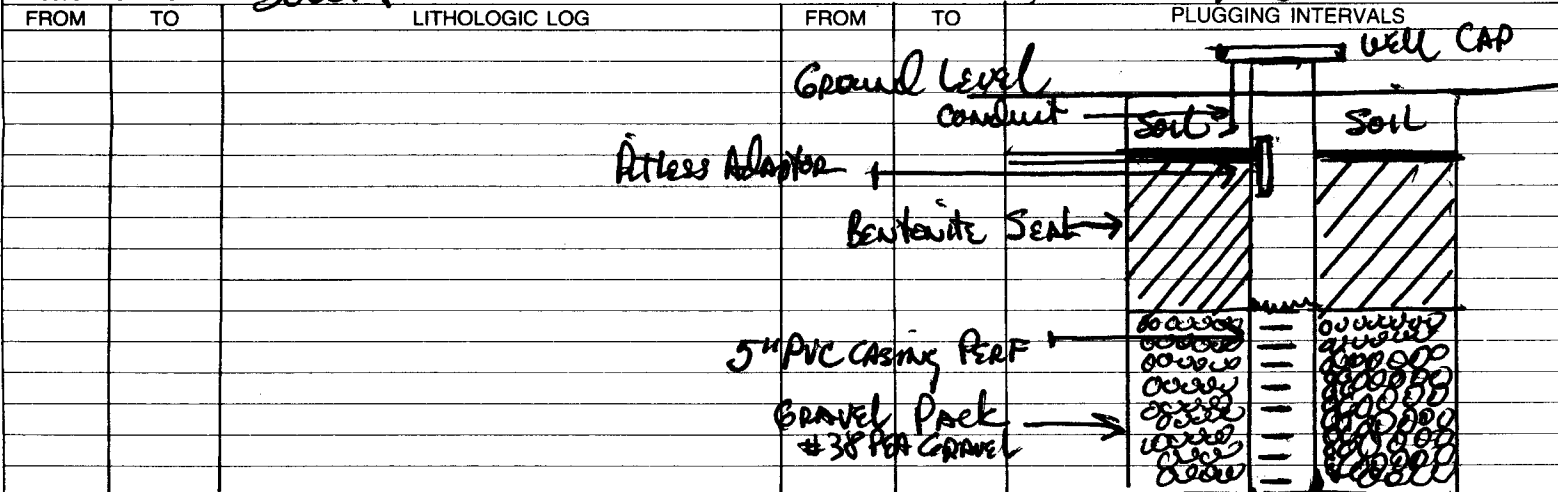 FROM TO LITHOLOGIC LOG FROM TO PLUGGING INTERVALS
WELL CAP
GROUND LEVEL
CONDUIT
SOIL SOIL
PITLESS ADAPTOR
BENTONITE SEAL
5" PVC CASING PERF
GRAVEL PACK
#38 PEA GRAVEL